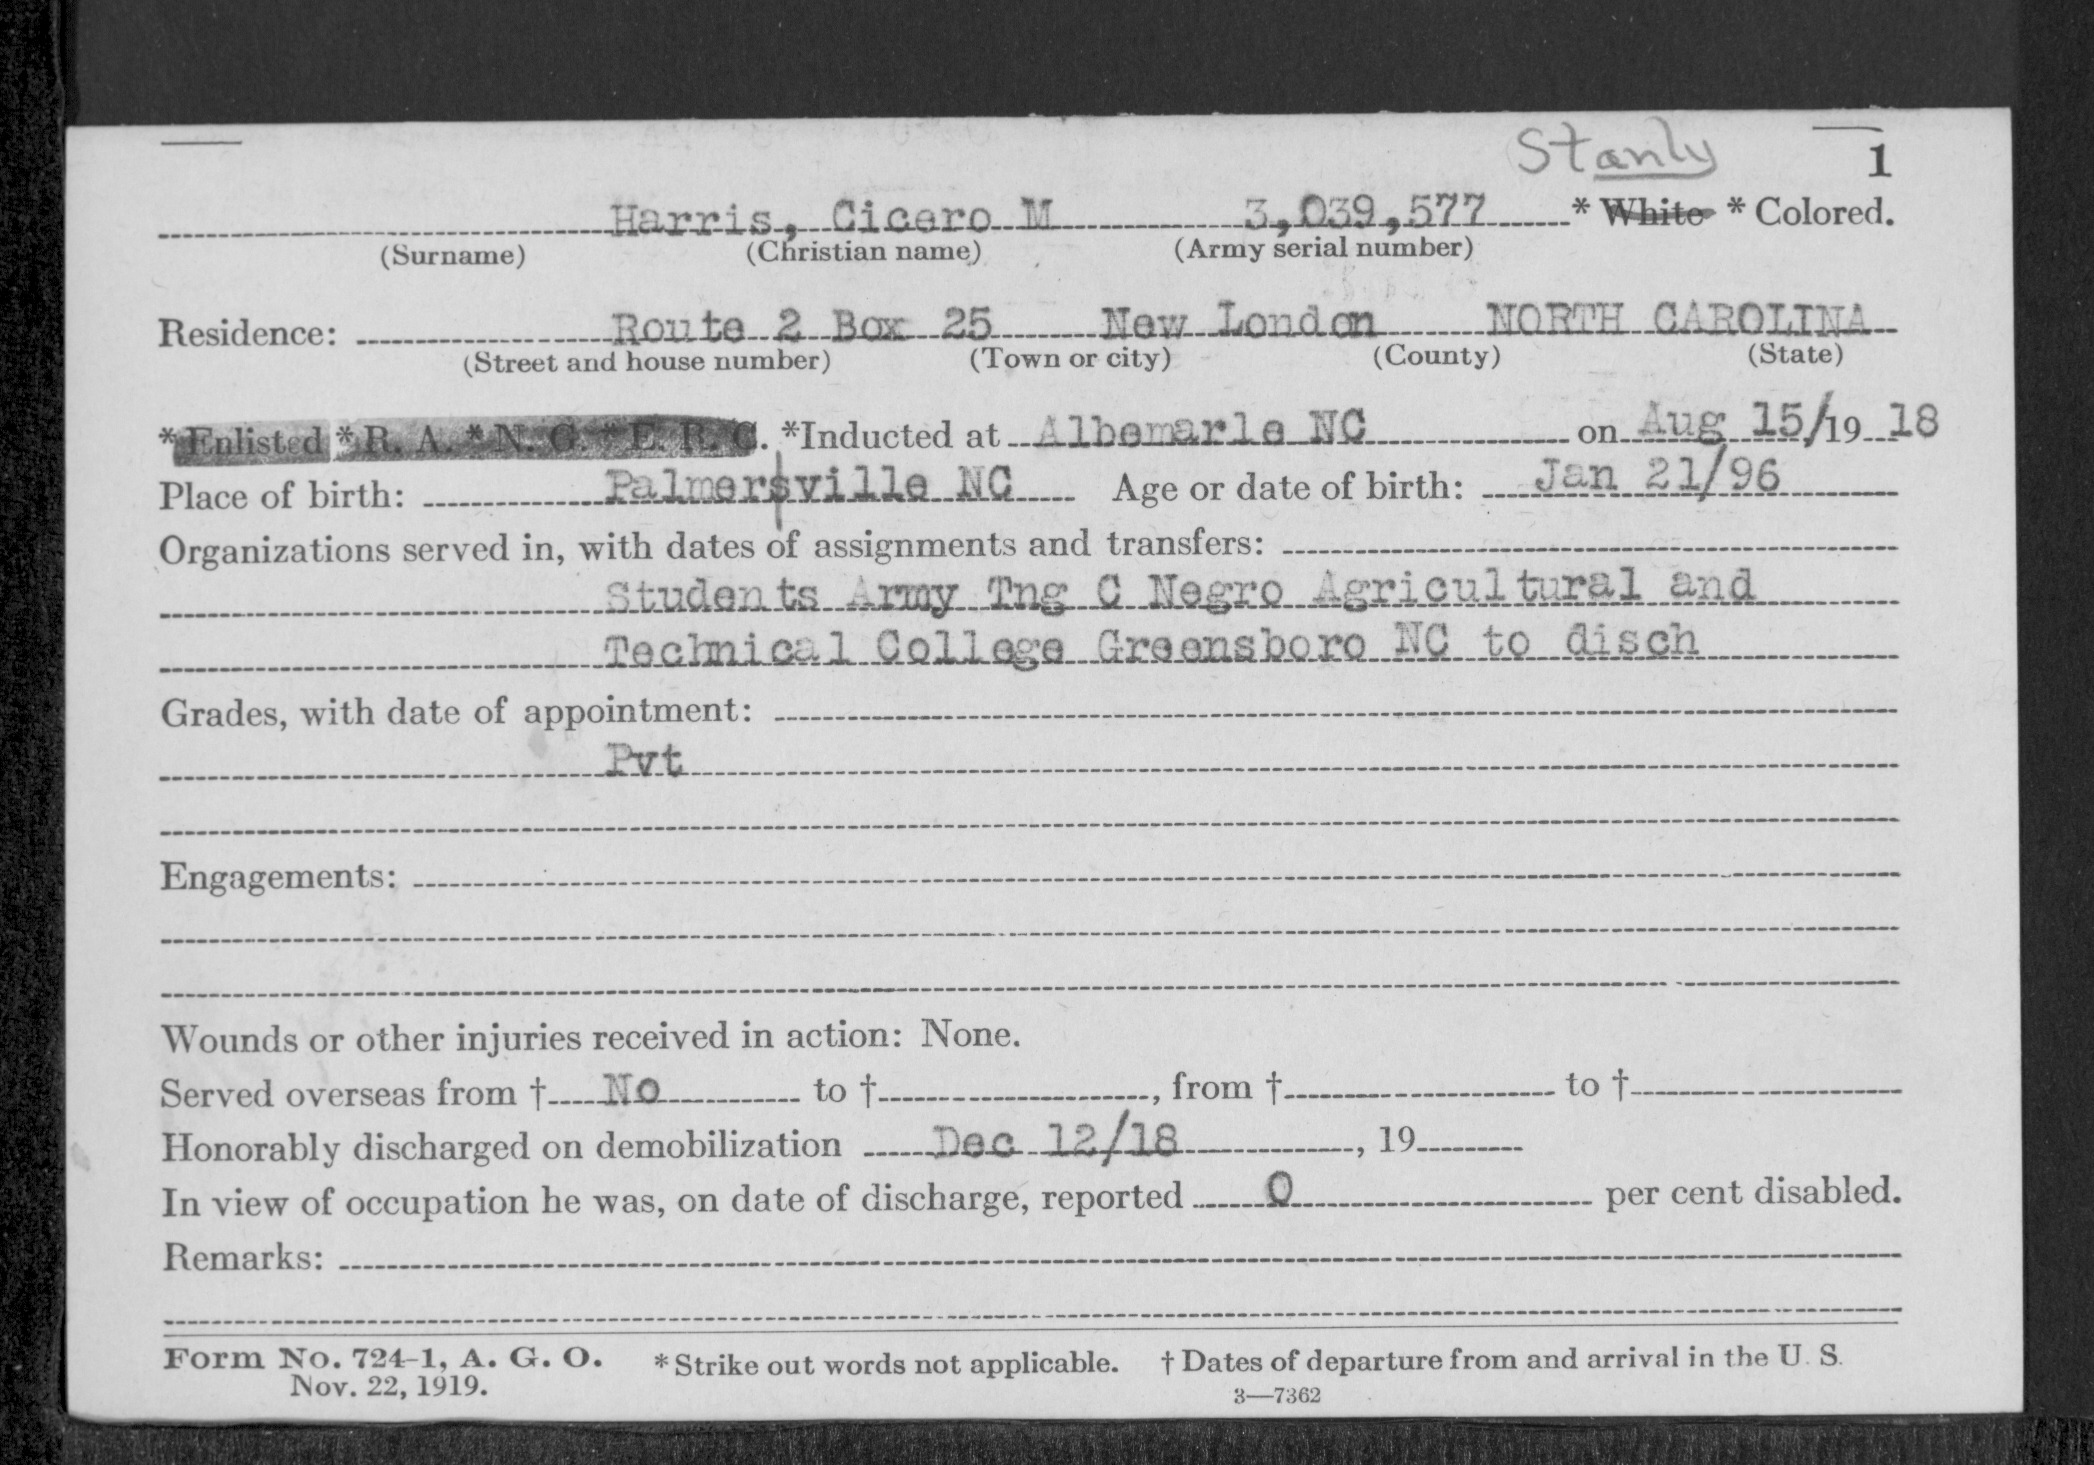 Stanly
1
Harris, Cicero M 3,039,577 * White * Colored.
(Surname) (Christian name) (Army serial number)
Residence: Route 2 Box 25 New London NORTH CAROLINA
(Street and house number) (Town or city) (County) (State)
*Enlisted *R. A. *N. G. *E. R. C. *Inducted at Albemarle NC on Aug 15/19 18
Place of birth: Palmersville NC Age or date of birth: Jan 21/96
Organizations served in, with dates of assignments and transfers:
Students Army Tng C Negro Agricultural and
Technical College Greensboro NC to disch
Grades, with date of appointment:
Pvt
Engagements:
Wounds or other injuries received in action: None.
Served overseas from † No to †, from † to †
Honorably discharged on demobilization Dec 12/18, 19
In view of occupation he was, on date of discharge, reported 0 per cent disabled.
Remarks:
Form No. 724-1, A. G. O. *Strike out words not applicable. † Dates of departure from and arrival in the U. S.
Nov. 22, 1919. 3—7362